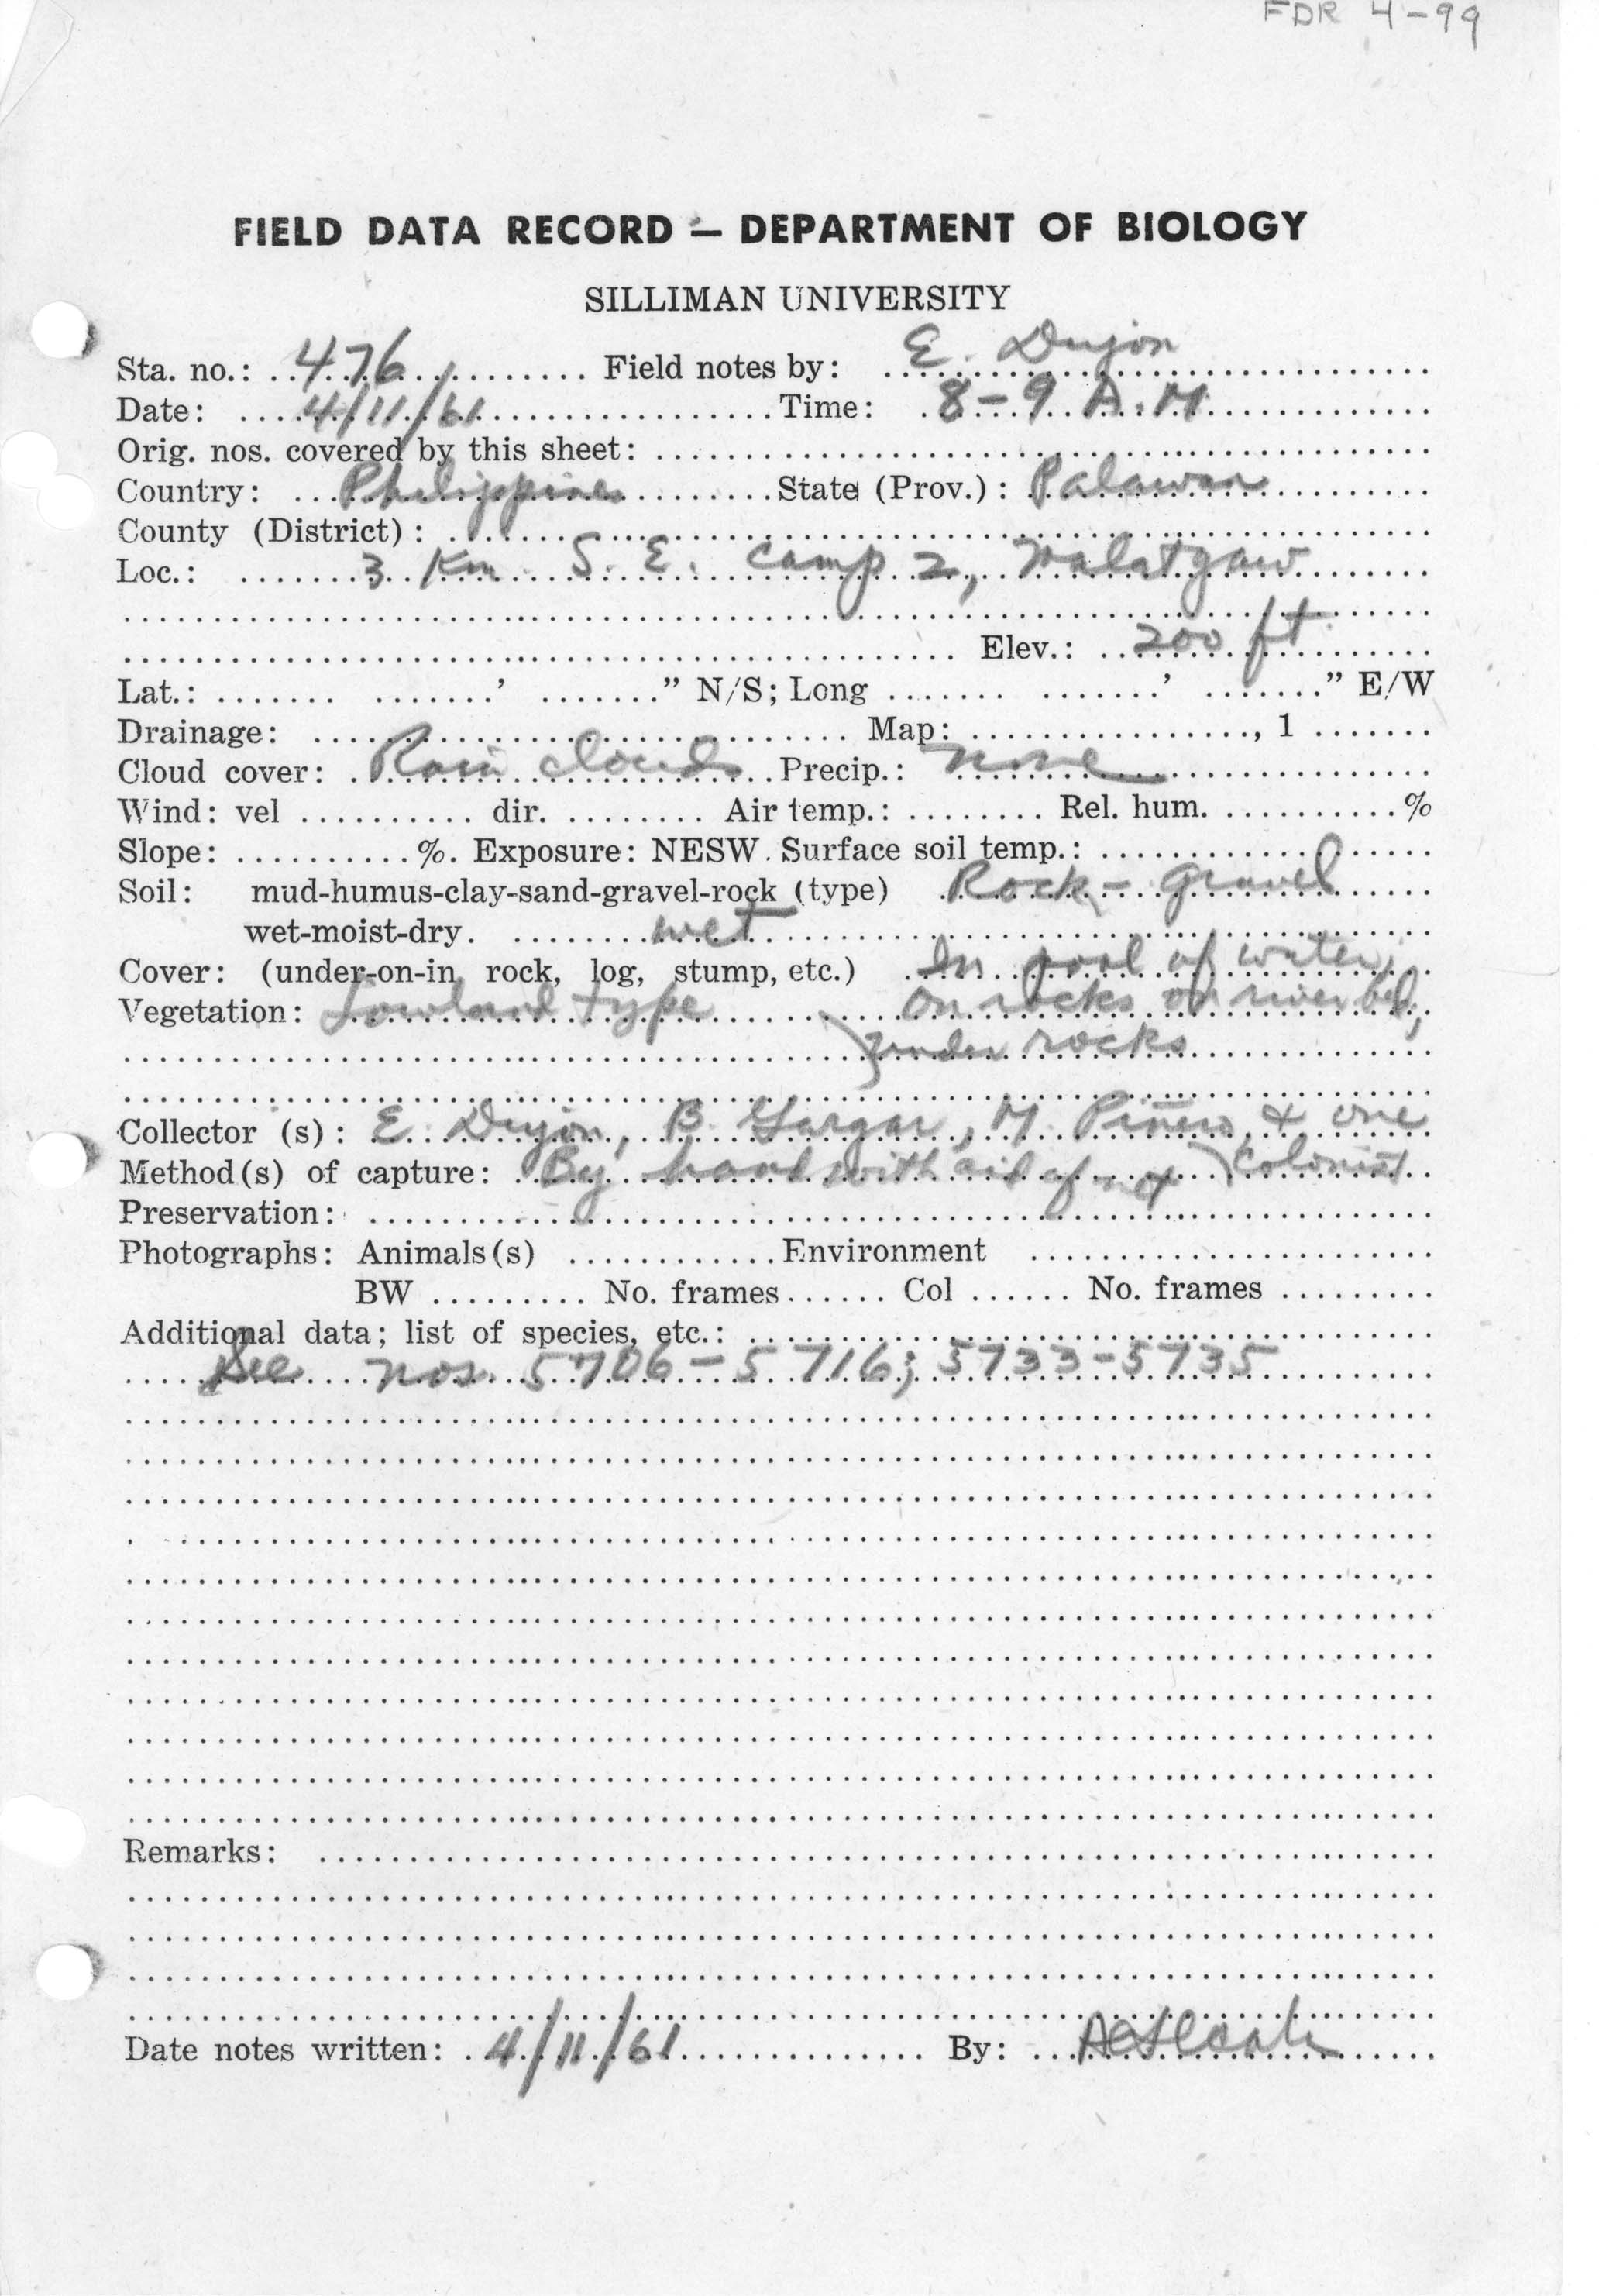 FDR 4-99
FIELD DATA RECORD — DEPARTMENT OF BIOLOGY
SILLIMAN UNIVERSITY
Sta. no.: 476 Field notes by: E. Dujon
Date: 4/11/61 Time: 8-9 A.M.
Orig. nos. covered by this sheet:
Country: Philippines State (Prov.): Palawan
County (District):
Loc.: 3 Km. S. E. Camp 2, Malatgaw
Elev.: 200 ft.
Lat.: ' " N/S; Long ' " E/W
Drainage: Map: , 1
Cloud cover: Rain clouds Precip.: none
Wind: vel dir. Air temp.: Rel. hum. %
Slope: %. Exposure: NESW. Surface soil temp.:
Soil: mud-humus-clay-sand-gravel-rock (type) Rock - gravel
wet-moist-dry. wet
Cover: (under-on-in, rock, log, stump, etc.) In pool of water,
Vegetation: Lowland type on rocks on river bed,
under rocks
Collector (s): E. Dujon, B. Gargar, M. Piñero, & one
Method(s) of capture: By hand with aid of net colonist
Preservation:
Photographs: Animals(s) Environment
BW No. frames Col No. frames
Additional data; list of species, etc.:
See nos. 5706-5716; 5733-5735
Remarks:
Date notes written: 4/11/61 By: